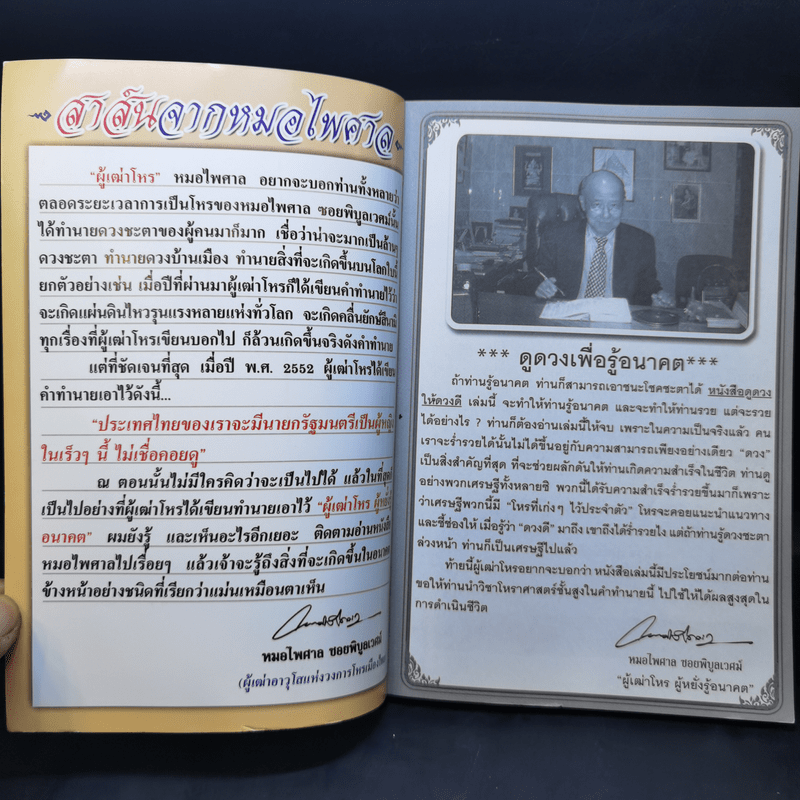 สาส์นจากหมอไพศาล
"ผู้เฒ่าโหร" หมอไพศาล อยากจะบอกท่านทั้งหลายว่า
ตลอดระยะเวลาการเป็นโหรของหมอไพศาล ซอยพิบูลเวศม์นั้น
ได้ทำนายดวงชะตาของผู้คนมาก็มาก เชื่อว่าน่าจะมากเป็นล้านๆ
ดวงชะตา ทำนายดวงบ้านเมือง ทำนายสิ่งที่จะเกิดขึ้นบนโลกใบนี้
ยกตัวอย่างเช่น เมื่อปีที่ผ่านมาผู้เฒ่าโหรก็ได้เขียนคำทำนายไว้ว่า
จะเกิดแผ่นดินไหวรุนแรงหลายแห่งทั่วโลก จะเกิดคลื่นยักษ์สึนามิ
ทุกเรื่องที่ผู้เฒ่าโหรเขียนบอกไป ก็ล้วนเกิดขึ้นจริงดังคำทำนาย
แต่ที่ชัดเจนที่สุด เมื่อปี พ.ศ. 2552 ผู้เฒ่าโหรได้เขียน
คำทำนายเอาไว้ดังนี้...
"ประเทศไทยของเราจะมีนายกรัฐมนตรีเป็นผู้หญิง
ในเร็วๆ นี้ ไม่เชื่อคอยดู"
ณ ตอนนั้นไม่มีใครคิดว่าจะเป็นไปได้ แล้วในที่สุดก็
เป็นไปอย่างที่ผู้เฒ่าโหรได้เขียนทำนายเอาไว้ "ผู้เฒ่าโหร ผู้หยั่งรู้
อนาคต" ผมยังรู้ และเห็นอะไรอีกเยอะ ติดตามอ่านหนังสือ
หมอไพศาลไปเรื่อยๆ แล้วเจ้าจะรู้ถึงสิ่งที่จะเกิดขึ้นในอนาคต
ข้างหน้าอย่างชนิดที่เรียกว่าแม่นเหมือนตาเห็น
หมอไพศาล ซอยพิบูลเวศม์
(ผู้เฒ่าอาวุโสแห่งวงการโหรเมืองไทย)
*** ดูดวงเพื่อรู้อนาคต***
ถ้าท่านรู้อนาคต ท่านก็สามารถเอาชนะโชคชะตาได้ หนังสือดูดวง
ให้ดวงดี เล่มนี้ จะทำให้ท่านรู้อนาคต และจะทำให้ท่านรวย แต่จะรวย
ได้อย่างไร ? ท่านก็ต้องอ่านเล่มนี้ให้จบ เพราะในความเป็นจริงแล้ว คน
เราจะร่ำรวยได้นั้นไม่ได้ขึ้นอยู่กับความสามารถเพียงอย่างเดียว "ดวง"
เป็นสิ่งสำคัญที่สุด ที่จะช่วยผลักดันให้ท่านเกิดความสำเร็จในชีวิต ท่านดู
อย่างพวกเศรษฐีทั้งหลายซิ พวกนี้ได้รับความสำเร็จร่ำรวยขึ้นมาก็เพราะ
ว่าเศรษฐีพวกนี้มี "โหรที่เก่งๆ ไว้ประจำตัว" โหรจะคอยแนะนำแนวทาง
และชี้ช่องให้ เมื่อรู้ว่า "ดวงดี" มาถึง เขาถึงได้ร่ำรวยไง แต่ถ้าท่านรู้ดวงชะตา
ล่วงหน้า ท่านก็เป็นเศรษฐีไปแล้ว
ท้ายนี้ผู้เฒ่าโหรอยากจะบอกว่า หนังสือเล่มนี้มีประโยชน์มากต่อท่าน
ขอให้ท่านนำวิชาโหราศาสตร์ชั้นสูงในคำทำนายนี้ ไปใช้ให้ได้ผลสูงสุดใน
การดำเนินชีวิต
หมอไพศาล ซอยพิบูลเวศม์
"ผู้เฒ่าโหร ผู้หยั่งรู้อนาคต"